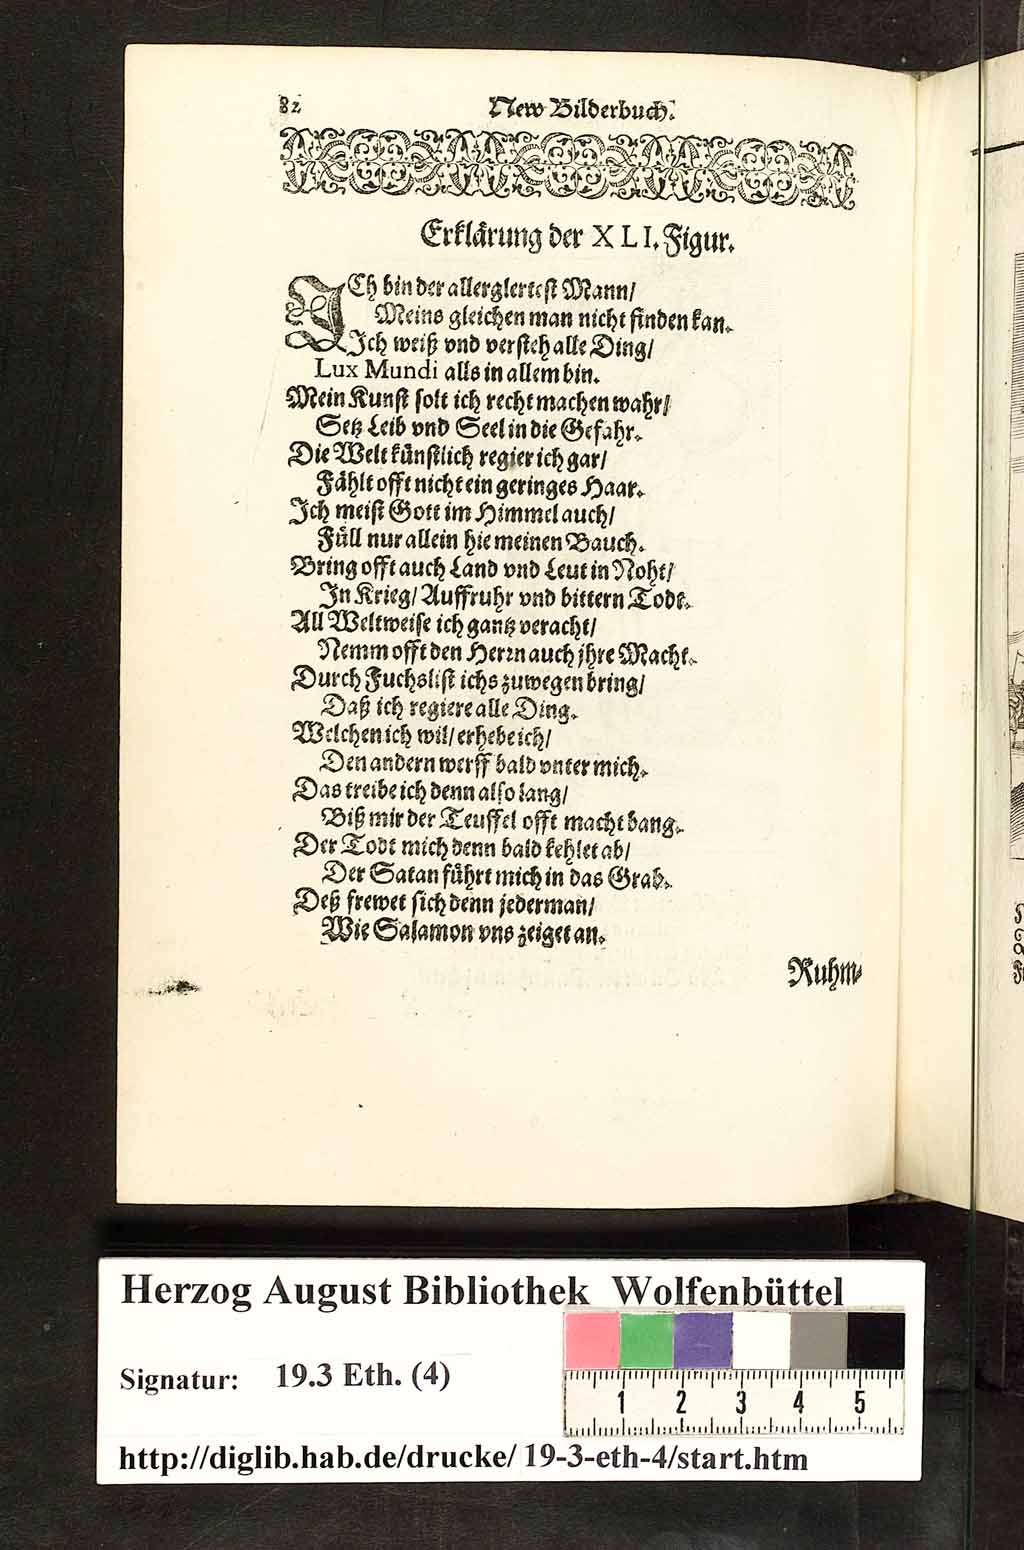 82
New Bilderbuch.
Erklärung der XLI. Figur.
ICh bin der allerglertest Mann/
Meins gleichen man nicht finden kan.
Ich weiß vnd versteh alle Ding/
Lux Mundi alls in allem bin.
Mein Kunst solt ich recht machen wahr/
Setz Leib vnd Seel in die Gefahr.
Die Welt künstlich regier ich gar/
Fählt offt nicht ein geringes Haar.
Ich meist Gott im Himmel auch/
Füll nur allein hie meinen Bauch.
Bring offt auch Land vnd Leut in Noht/
In Krieg/ Auffruhr vnd bittern Todt.
All Weltweise ich gantz veracht/
Nemm offt den Herrn auch jhre Macht.
Durch Fuchslist ichs zuwegen bring/
Daß ich regiere alle Ding.
Welchen ich wil/ erhebe ich/
Den andern werff bald vnter mich.
Das treibe ich denn also lang/
Biß mir der Teuffel offt macht bang.
Der Todt mich denn bald kehlet ab/
Der Satan führt mich in das Grab.
Deß frewet sich denn jederman/
Wie Salamon vns zeiget an.
Ruhm-
Herzog August Bibliothek Wolfenbüttel
Signatur: 19.3 Eth. (4)
1 2 3 4 5
http://diglib.hab.de/drucke/19-3-eth-4/start.htm